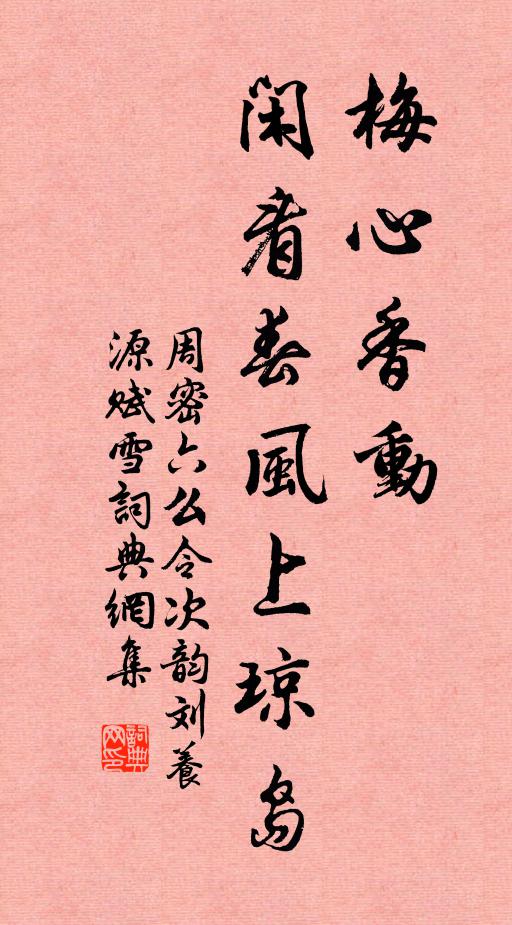 梅心香動
閑看春風上琼島
周密六么令次韵刘養
源赋雪詞典網集
詞典
网印